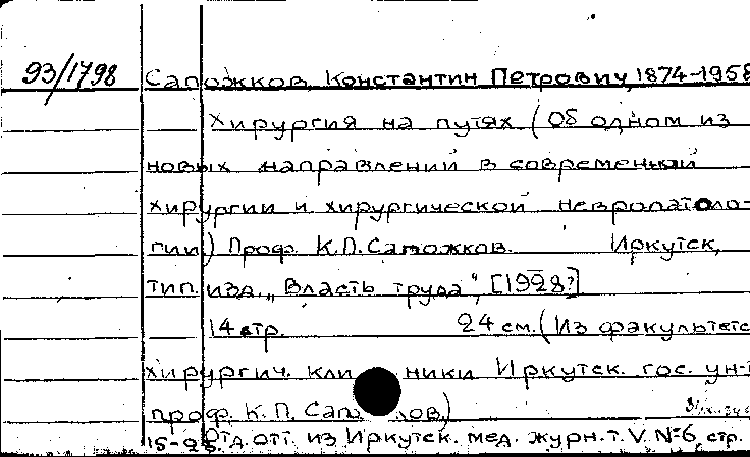 93/1798 Сапожков, Константин Петрович, 1874-1958
Хирургия на путях (Об одном из
новых направлений в современной
хирургии и хирургической невропатоло-
гии) Проф. К.П. Сапожков. Иркутск,
тип. изд. „Власть труда", [1928?]
14 стр. 24 см. (Из факультетс
хирургич. кли ники Иркутск. гос. ун-т
проф. К.П. Сапо ков)
15-28 Отд. отт. из Иркутск. мед. журн. т. V. №6, стр.